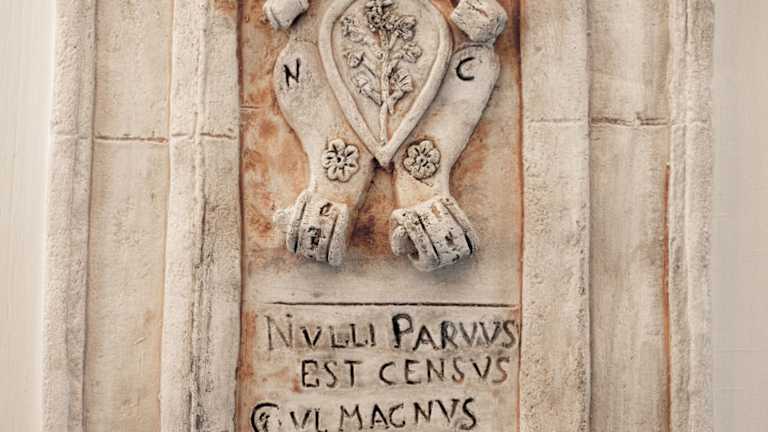 N C
NVLLI PARVVS
EST CENSVS
CVI MAGNVS